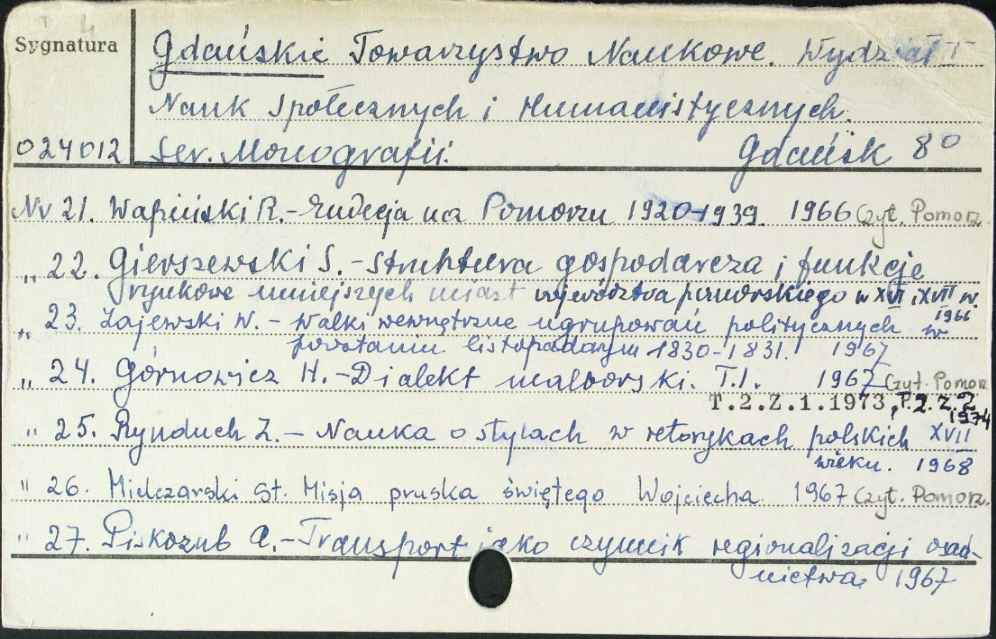 Sygnatura
Gdańskie Towarzystwo Naukowe. Wydział I
Nauk Społecznych i Humanistycznych.
024012 Ser. Monografii. Gdańsk 8°
Nr 21. Wapiński R. - Endecja na Pomorzu 1920-1939. 1966 Czyt. Pomorz.
„ 22. Gierszewski S. - Struktura gospodarcza i funkcje
rynkowe mniejszych miast województwa pomorskiego w XVI i XVII w.
1966
„ 23. Zajewski W. - Walki wewnętrzne ugrupowań politycznych w
powstaniu listopadowym 1830-1831. 1967
„ 24. Górnowicz H. - Dialekt malborski. T.I. 1967 Czyt. Pomorz
T.2.Z.1.1973, T.2.Z.2
1974
„ 25. Rynduch Z. - Nauka o stylach w retorykach polskich XVII
wieku. 1968
„ 26. Mielczarski St. Misja pruska świętego Wojciecha 1967 Czyt. Pomorz.
„ 27. Piskozub A. - Transport jako czynnik regionalizacji osad-
nictwa 1967